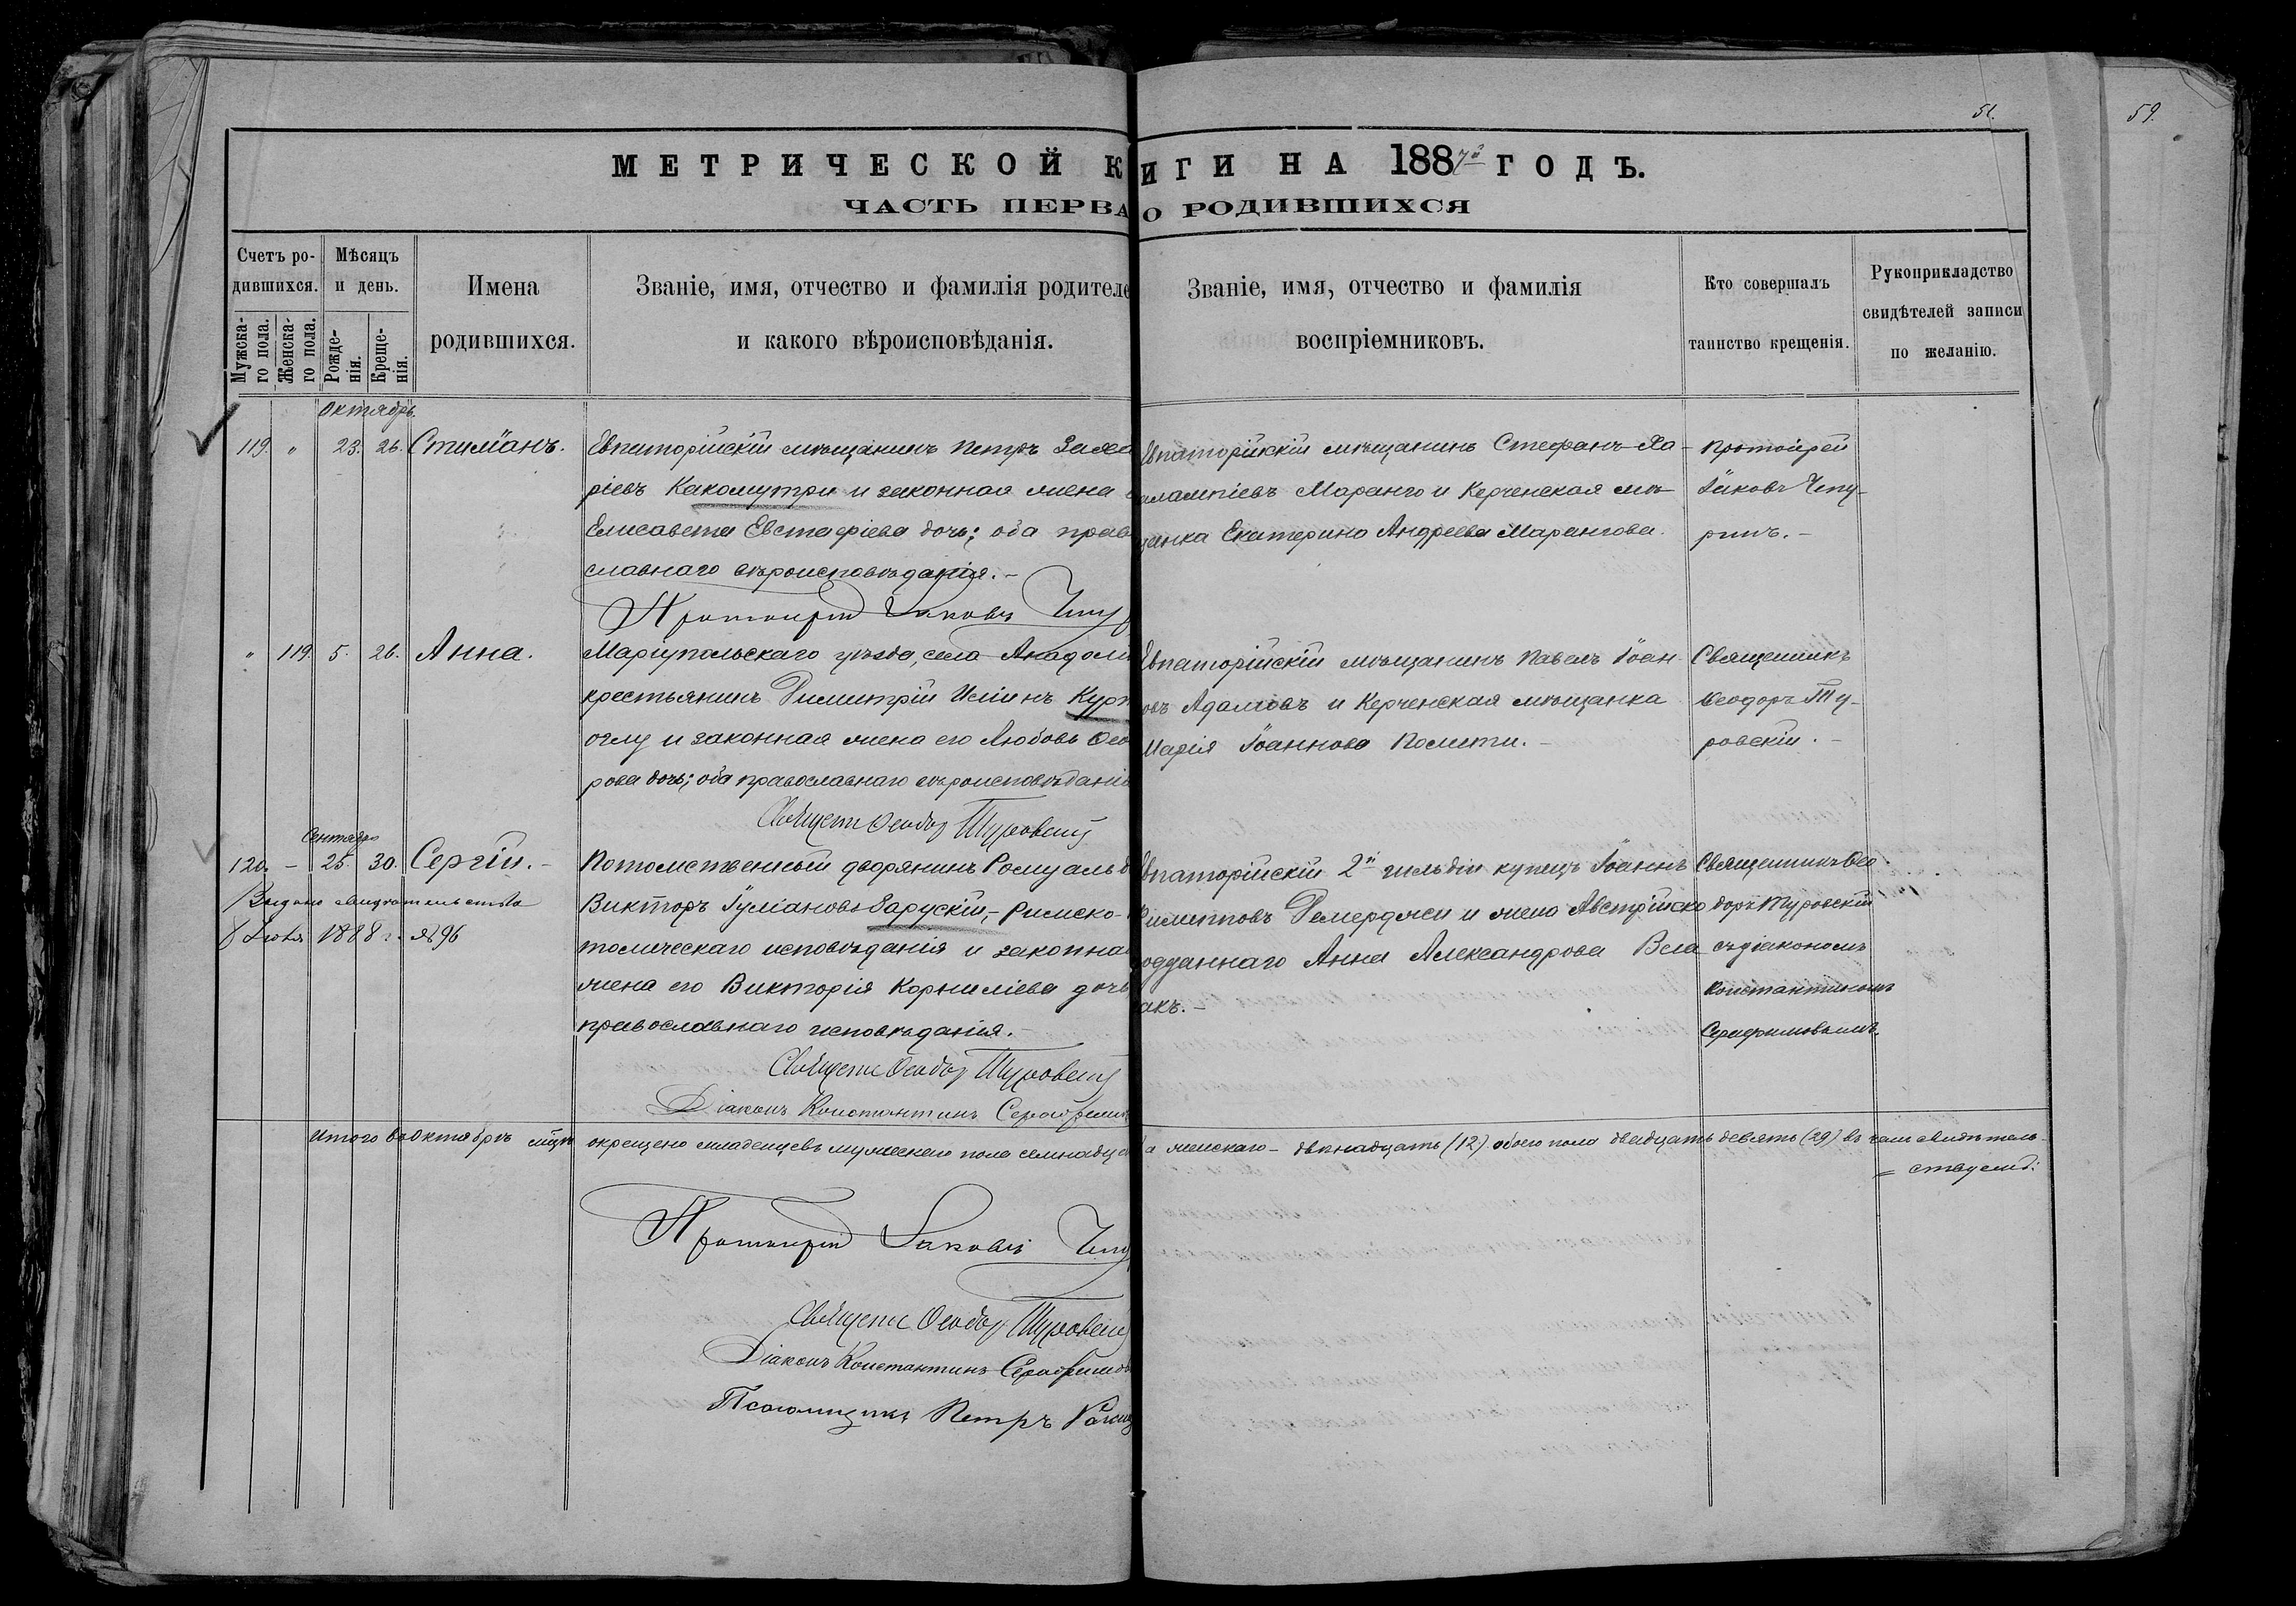 51.
59.
МЕТРИЧЕСКОЙ К
ИГИ НА 1887й ГОДЪ.
ЧАСТЬ ПЕРВА
О РОДИВШИХСЯ
Счетъ ро-
дившихся.
Мужска-
го пола.
Женска-
го пола.
Мѣсяцъ
и день.
Рожде-
нія.
Креще-
нія.
Имена
родившихся.
Званіе, имя, отчество и фамилія родителе
и какого вѣроисповѣданія.
Званіе, имя, отчество и фамилія
воспріемниковъ.
Кто совершалъ
таинство крещенія.
Рукоприкладство
свидѣтелей записи
по желанію.
Октябрь.
119. " 23. 26. Стиліанъ.
Евпаторійскій мѣщанинъ Петръ Заха
ріевъ Какомутри и законная жена
Елисавета Евстафіева дочь; оба прав
славнаго вѣроисповѣданія.-
Протоіерей Іаковъ Чепу
Евпаторійскій мѣщанинъ Стефанъ Ха-
ралампіевъ Маранго и Керченская мѣ-
щанка Екатерина Андреева Марангова.
Протоіерей
Іаковъ Чепу-
ринъ.-
" 119. 5. 26. Анна.
Маріупольскаго уѣзда, села Анадоли
крестьянинъ Димитрій Иліинъ Курт
оглу и законная жена его Любовь Ѳео
рова дочь; оба православнаго вѣроисповѣдані
Священ Ѳеодор Туровскій
Евпаторійскій мѣщанинъ Павелъ Іоан-
овъ Адамовъ и Керченская мѣщанка
Марія Іоаннова Полити.-
Священникъ
Ѳеодоръ Ту-
ровскій.-
Сентябрь
120. - 25 30. Сергій.-
Выдано свидѣтельство
8 Іюня 1888 г. № 96
Потомственный дворянинъ Ромуальд
Викторъ Іуліановъ Зарускій,- Римско-
толическаго исповѣданія и законна
жена его Викторія Корниліева дочь
православнаго исповѣданія.-
Священ Ѳеодор Туровскій
Діаконъ Константинъ Серафим
Евпаторійскій 2й гильдіи купецъ Іоаннъ
Димитовъ Демерджи и жена Австрійско
подданнаго Анна Александрова Вела
акъ.-
Священникъ Ѳео
доръ Туровскій
съ діакономъ
Константиномъ
Серафимовымъ.
Итого въ Октябрѣ мцѣ окрещено младенцевъ мужескаго пола семнадца
а женскаго - двѣнадцать (12) обоего пола двадцать девять (29) въ чемъ свидѣтель-
= ствуемъ:
Протоіерей Іаковъ Чепу
Священ Ѳеодор Туровскі
Діаконъ Константинъ Серафимов
Псаломщикъ Петръ